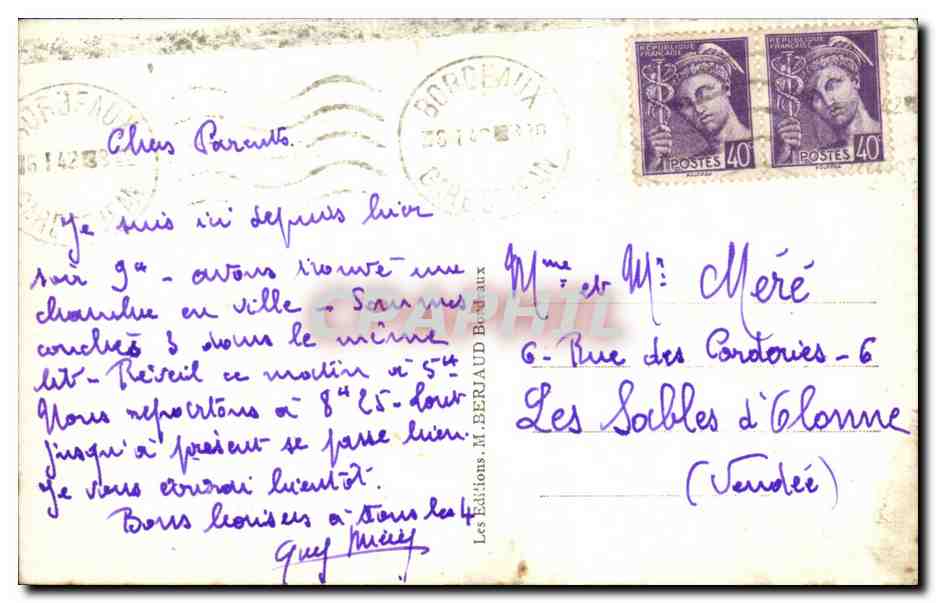 BORDEAUX
BORDEAUX
RÉPUBLIQUE FRANÇAISE
POSTES 40
RÉPUBLIQUE FRANÇAISE
POSTES 40
Chers Parents.
Je suis ici depuis hier
soir 9h - avons trouvé une
chambre en ville - Sommes
couchés 3 dans le même
lit - Réveil ce matin à 5h
Nous repartons à 8h 25 - tout
jusqu'à présent se passe bien.
Je vous écrirai bientôt.
Bons baisers à tous les 4
Guy Méré
Les Editions. M. BERJAUD Bordeaux
CPAPHIL
Mme et Mr Méré
6 - Rue des Corderies - 6
Les Sables d'Olonne
(Vendée)